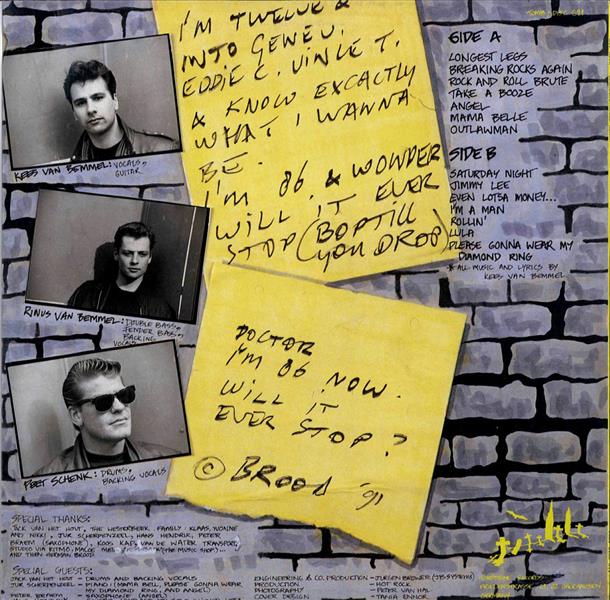 I'M TWELVE &
INTO GENEU.
EDDIE C. VINCE T.
& KNOW EXCACTLY
WHAT I WANNA
BE.
I'M 86 & WONDER
WILL IT EVER
STOP (BOPTILL
YOU DROP)
DOCTOR
I'M 86 NOW.
WILL IT
EVER STOP?
© BROOD '91
KEES VAN BEMMEL: VOCALS,
GUITAR
RINUS VAN BEMMEL: DOUBLE BASS,
FENDER BASS,
BACKING
VOCALS
PEET SCHENK: DRUMS,
BACKING VOCALS
SIDE A
LONGEST LEGS
BREAKING ROCKS AGAIN
ROCK AND ROLL BRUTE
TAKE A BOOZE
ANGEL
MAMA BELLE
OUTLAWMAN
SIDE B
SATURDAY NIGHT
JIMMY LEE
EVEN LOTSA MONEY...
I'M A MAN
ROLLIN'
LULA
PLEASE GONNA WEAR MY
DIAMOND RING
* ALL MUSIC AND LYRICS BY
KEES VAN BEMMEL
SPECIAL THANKS:
JACK VAN HET HOUT, THE WESTERBEEK FAMILY: KLAAS, YVONNE
AND NIKKI, JUK SCHERPENZEEL, HANS HENDRIK, PETER
BRAEM (SAXOPHONE), KOOS KAPS VAN DE WATER TRANSPORT,
STUDIO VIA RITMO, (THE MUSIC SHOP)...
AND THEN HERMAN BROOD!
SPECIAL GUESTS:
JACK VAN HET HOUT - DRUMS AND BACKING VOCALS
SCHERPENZEEL - PIANO (MAMA BELLE, PLEASE GONNA WEAR
MY DIAMOND RING, AND ANGEL)
PETER BRAEM - SAXOPHONE (ANGEL)
ENGINEERING & CO. PRODUCTION - JURGEN BROWER (JB SYSTEMS)
PRODUCTION - HOT ROCK
PHOTOGRAPHY - PETER VAN HAL
COVER DESIGN - TANJA ENNOR
RECORDS
GERMANY